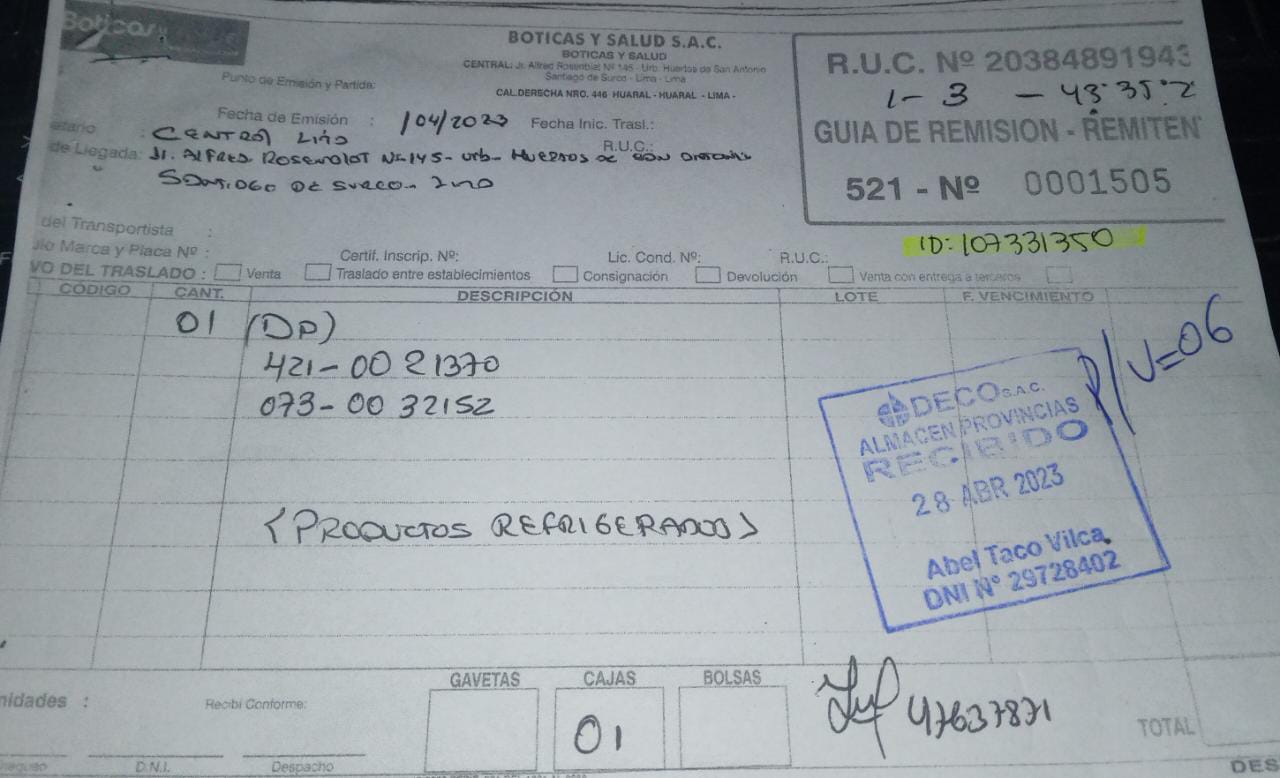 Boticas
BOTICAS Y SALUD S.A.C.
BOTICAS Y SALUD
CENTRAL: Jr. Alfred Rosenblat Nº 145 - Urb. Huertos de San Antonio
Santiago de Surco - Lima - Lima
Punto de Emisión y Partida:
CAL.DERECHA NRO. 446 HUARAL - HUARAL - LIMA -
R.U.C. Nº 20384891943
1-3 - 43:35:2
GUIA DE REMISION - REMITEN
521 - Nº 0001505
Fecha de Emisión : /04/2023 Fecha Inic. Trasl.:
etario : CENTRAL
R.U.C.:
de Llegada: Jr. ALFRED ROSEMBLAT Nº145- Urb- HUERTOS DE SAN
SANTIAGO DE SURCO -
del Transportista :
ulo Marca y Placa Nº : Certif. Inscrip. Nº: Lic. Cond. Nº: R.U.C.:
ID: 107331350
VO DEL TRASLADO : Venta Traslado entre establecimientos Consignación Devolución Venta con entrega a terceros
CÓDIGO CANT. DESCRIPCIÓN LOTE F. VENCIMIENTO
01 (DP)
421-0021370
073-0032152
P/V=06
DECO S.A.C.
ALMACEN PROVINCIAS
RECIBIDO
28 ABR 2023
Abel Taco Vilca
DNI Nº 29728402
<PRODUCTOS REFRIGERADOS>
nidades : Recibí Conforme: GAVETAS CAJAS BOLSAS
01
47637871
TOTAL
D.N.I. Despacho
DES